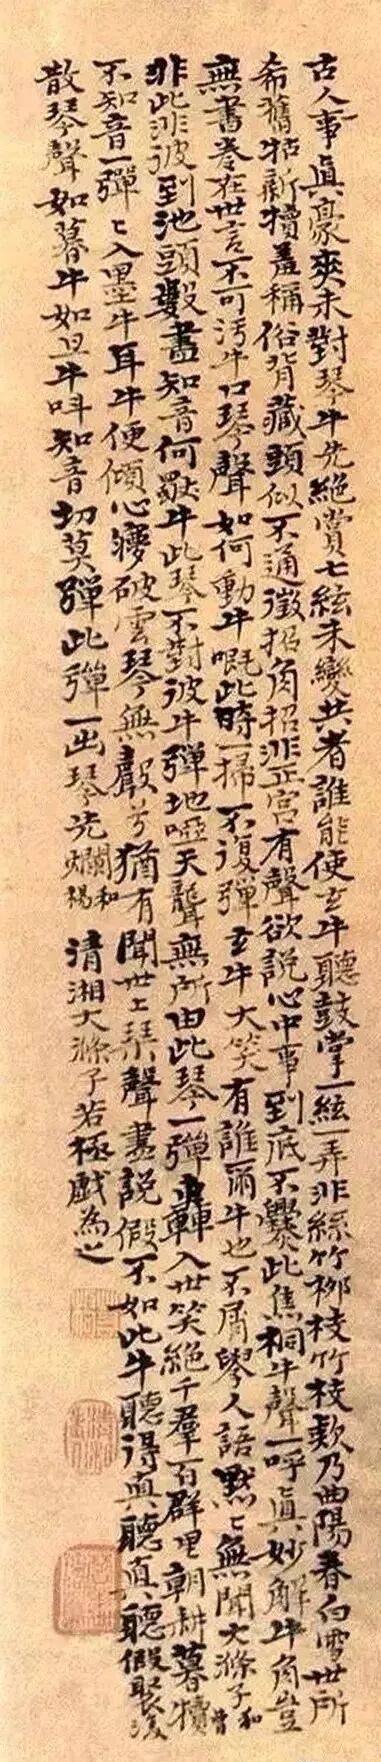 古人事真豪爽未對琴牛先絕賞七絃未變共者誰能使玄牛聽鼓掌一絃一弄非絲竹柳枝竹枝欸乃曲陽春白雪世所
希舊牯新犢羞稱俗背藏頭似不通徵招角招非正宮有聲欲說心中事到底不爨此焦桐牛聲一呼真妙解牛角豈
無書卷在世言不可污牛口琴聲如何動牛慨此時一掃不復彈玄牛大笑有誰爾牛也不屑學人語默ヒ無聞大滌子和曹
非此非彼到池頭數盡知音何獨牛此琴不對彼牛彈地啞天聾無所由此琴一彈轟入世笑絕千群百群里朝耕暮犢
不知音一彈ヒ入墨牛耳牛便傾心夢破雲琴無聲兮猶有聞世上琴聲盡說假不如此牛聽得真聽真聽假聚復
散琴聲如暮牛如旦牛叫知音切莫彈此彈一出琴先爛和楊 清湘大滌子若極戲為之